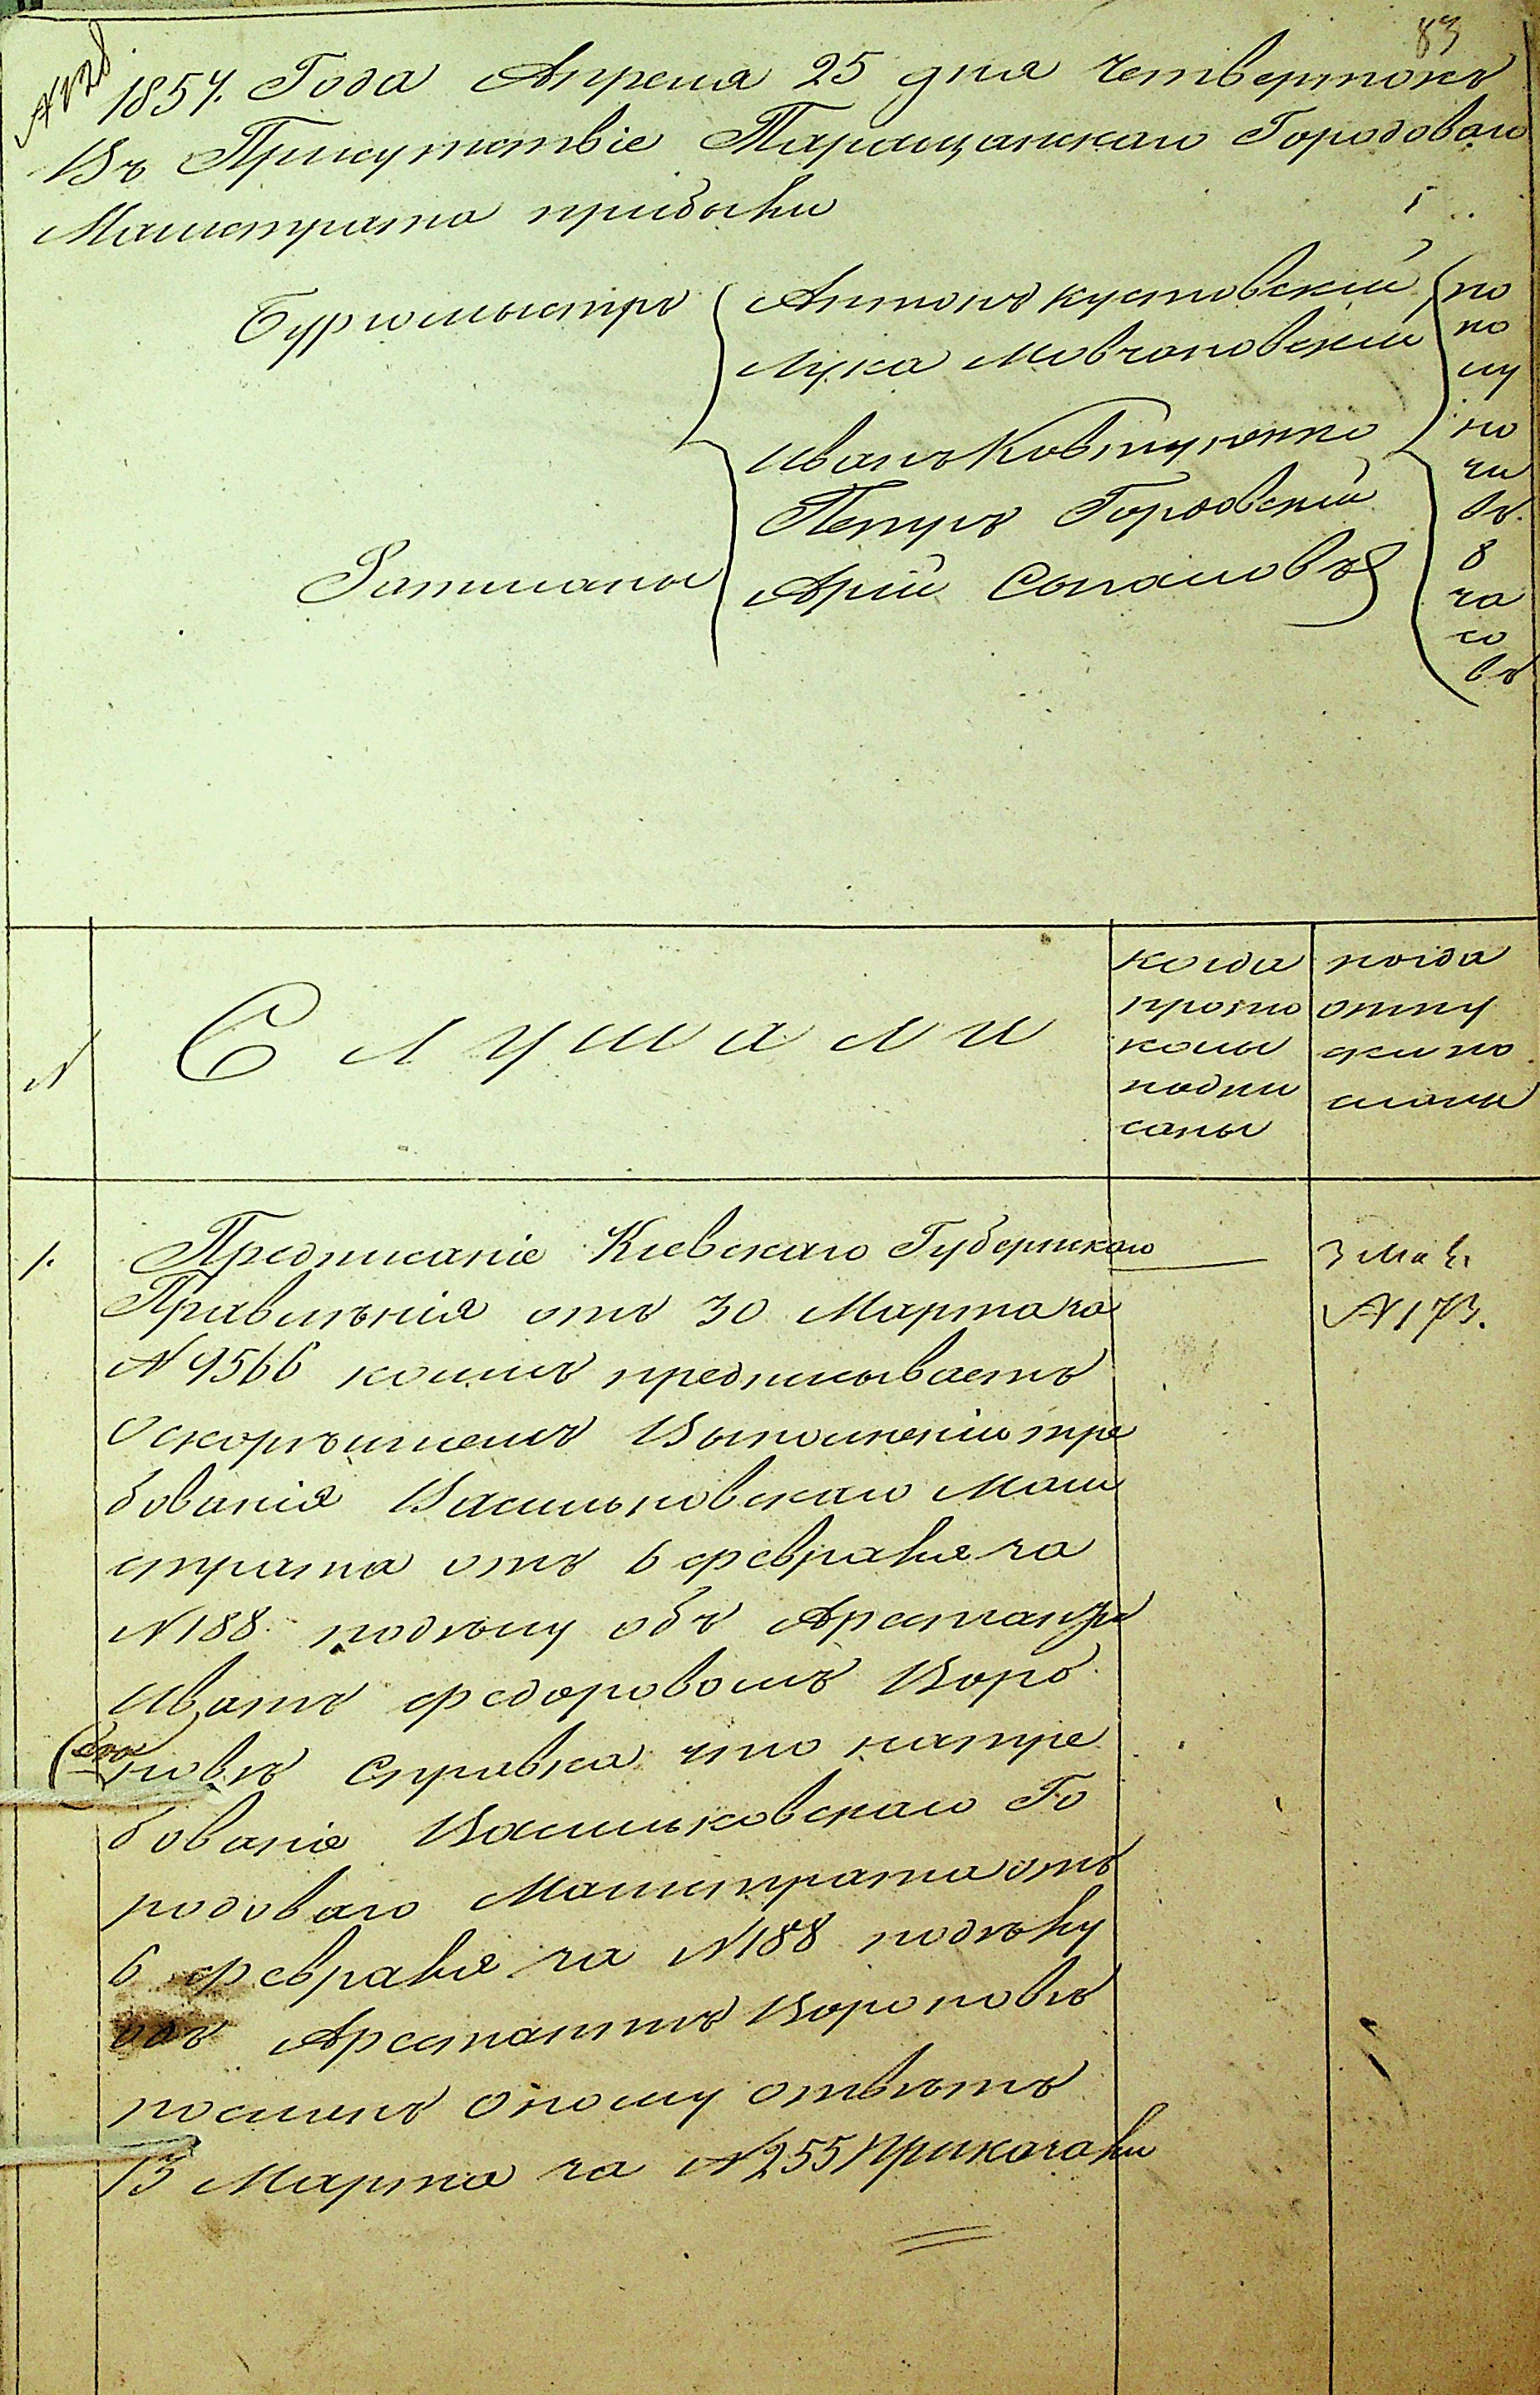 83
1857. Года Апреля 25 дня Четвертокъ
Въ Присутствіе Таращанскаго Городоваго
Магистрата прибыли
Бургомыстръ
Антонъ кустовскій
Лука Мовчановскій
Иванъ Ковтуненко
Петръ Гордовскій
Ратманы
Арій
по
по
лу
но
чи
въ
8
ча
со
въ
N
Слушали
когда
прото
колы
подпи
саны
когда
отпу
ски по
сланы
1.
Предписаніе Кіевскаго Губернскаго
Правленія отъ 30 Марта за
N 9566 коимъ предписываетъ
О скорѣйшемъ Выполненіи тре
бованія Васильковскаго Маги
страта отъ 6 февраля за
N 188 подѣлу объ Арестанте
Иванѣ федоровомъ Воро
новѣ Справка что натре
бованіе Васильковскаго Го
родоваго Магистрата отъ
6 февраля за N 188 подѣлу
объ Арестантѣ Вороновѣ
посланъ Оному отвѣтъ
13 Марта за N 255 Приказали
3 Маѣ.
N 173.